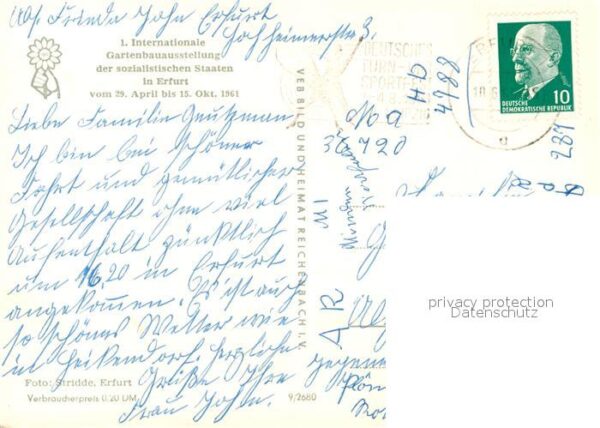 Abs. Frieda Jahn Erfurt
Hochheimerstr. 3.
1. Internationale
Gartenbauausstellung
der sozialistischen Staaten
in Erfurt
vom 29. April bis 15. Okt. 1961
Liebe Familie
Ich bin bei schöner
Fahrt und gemütlicher
Gesellschaft ohne viel
Aufenthalt pünktlich
um 16.20 in Erfurt
angekommen. Es ist auch
so schönes Wetter wie
in Heikendorf. Herzliche
Grüße Ihre
Frau Jahn.
Foto: Stridde, Erfurt
Verbraucherpreis 0,20 DM
9/2680
VEB BILD UND HEIMAT REICHENBACH I. V.
DEUTSCHES
TURN-
SPORT
DEUTSCHE
DEMOKRATISCHE REPUBLIK
10
HD
4988
Ma
720
M1
AR
privacy protection
Datenschutz